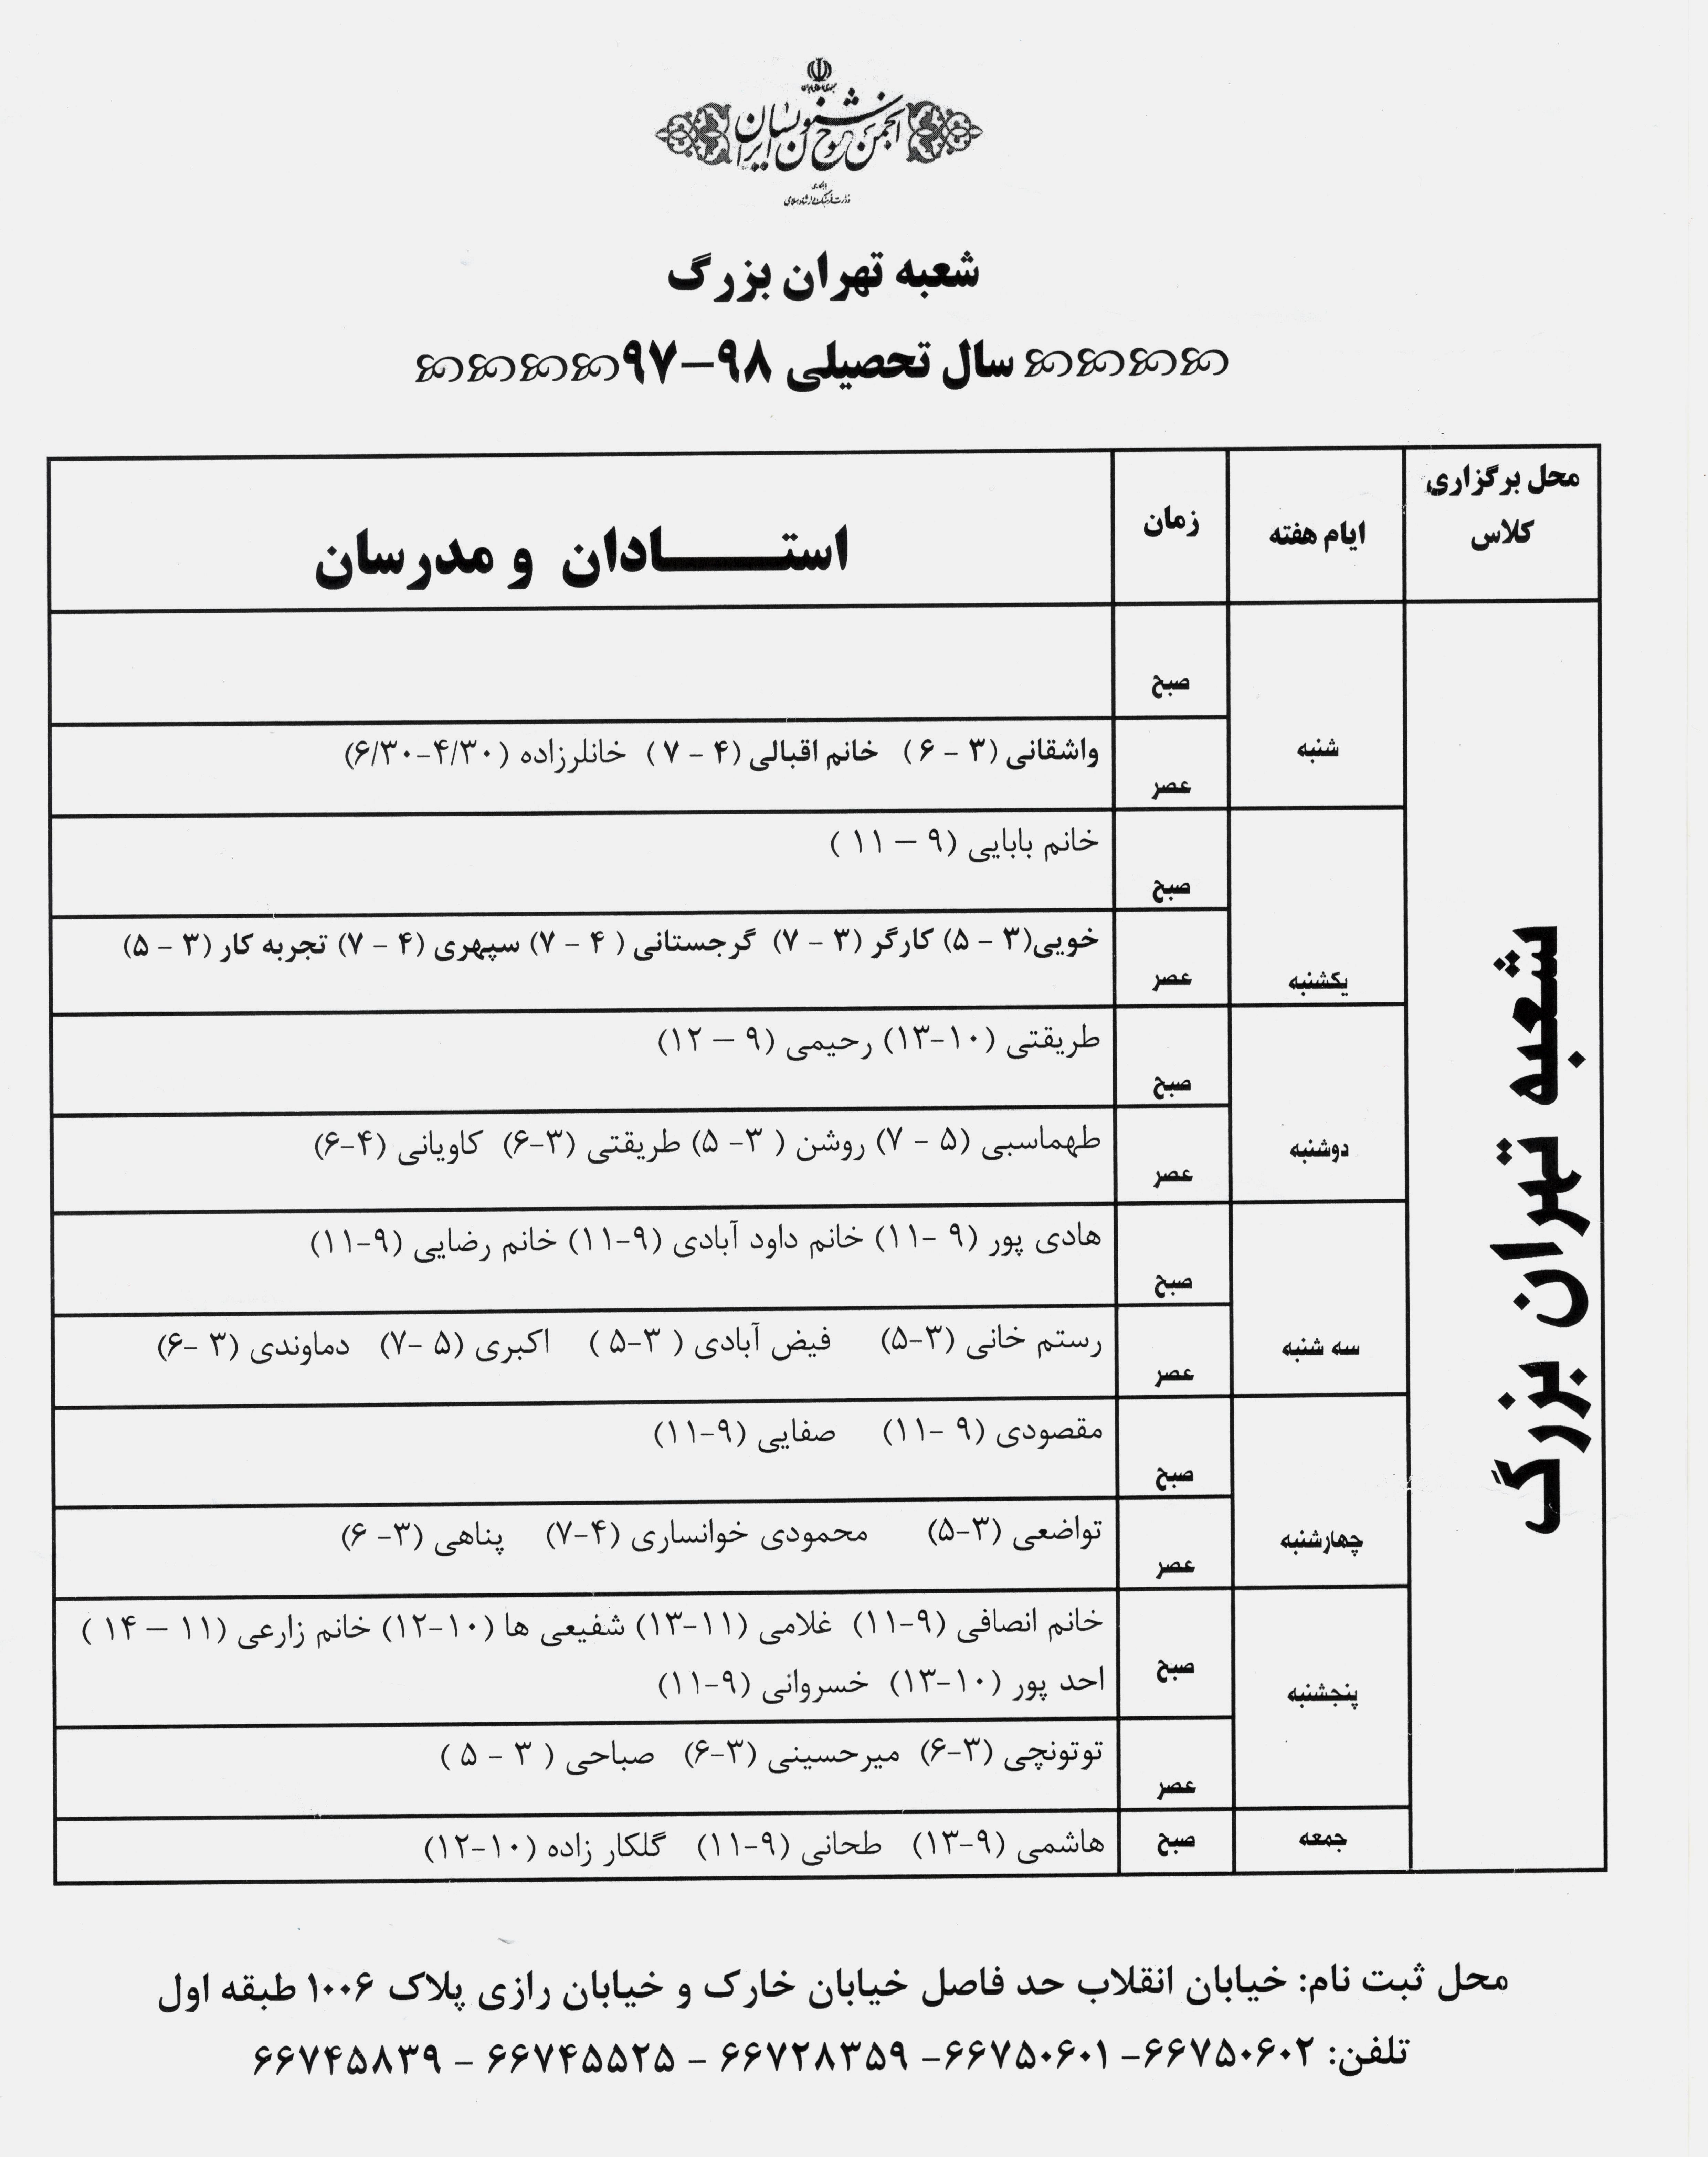 انجمن خوشنویسان ایران
شعبه تهران بزرگ
سال تحصیلی ۹۸–۹۷
محل برگزاری کلاس
ایام هفته
زمان
استـــــــادان و مدرسان
شعبه تهران بزرگ
شنبه
صبح
عصر
واشقانی (۳ – ۶) خانم اقبالی (۴ – ۷) خانلرزاده (۴/۳۰–۶/۳۰)
یکشنبه
صبح
خانم بابایی (۹ – ۱۱)
عصر
خویی(۳ – ۵) کارگر (۳ – ۷) گرجستانی (۴ – ۷) سپهری (۴ – ۷) تجربه کار (۳ – ۵)
دوشنبه
صبح
طریقتی (۱۰–۱۳) رحیمی (۹ – ۱۲)
عصر
طهماسبی (۵ – ۷) روشن (۳– ۵) طریقتی (۳–۶) کاویانی (۴–۶)
سه شنبه
صبح
هادی پور (۹ –۱۱) خانم داود آبادی (۹–۱۱) خانم رضایی (۹–۱۱)
عصر
رستم خانی (۳–۵) فیض آبادی (۳–۵) اکبری (۵ –۷) دماوندی (۳ –۶)
چهارشنبه
صبح
مقصودی (۹ –۱۱) صفایی (۹–۱۱)
عصر
تواضعی (۳–۵) محمودی خوانساری (۴–۷) پناهی (۳– ۶)
پنجشنبه
صبح
خانم انصافی (۹–۱۱) غلامی (۱۱–۱۳) شفیعی ها (۱۰–۱۲) خانم زارعی (۱۱ – ۱۴)
احد پور (۱۰–۱۳) خسروانی (۹–۱۱)
عصر
توتونچی (۳–۶) میرحسینی (۳–۶) صباحی (۳ – ۵)
جمعه
صبح
هاشمی (۹–۱۳) طحانی (۹–۱۱) گلکار زاده (۱۰–۱۲)
محل ثبت نام: خیابان انقلاب حد فاصل خیابان خارک و خیابان رازی پلاک ۱۰۰۶ طبقه اول
تلفن: ۶۶۷۵۰۶۰۲– ۶۶۷۵۰۶۰۱– ۶۶۷۲۸۳۵۹ – ۶۶۷۴۵۵۲۵ – ۶۶۷۴۵۸۳۹